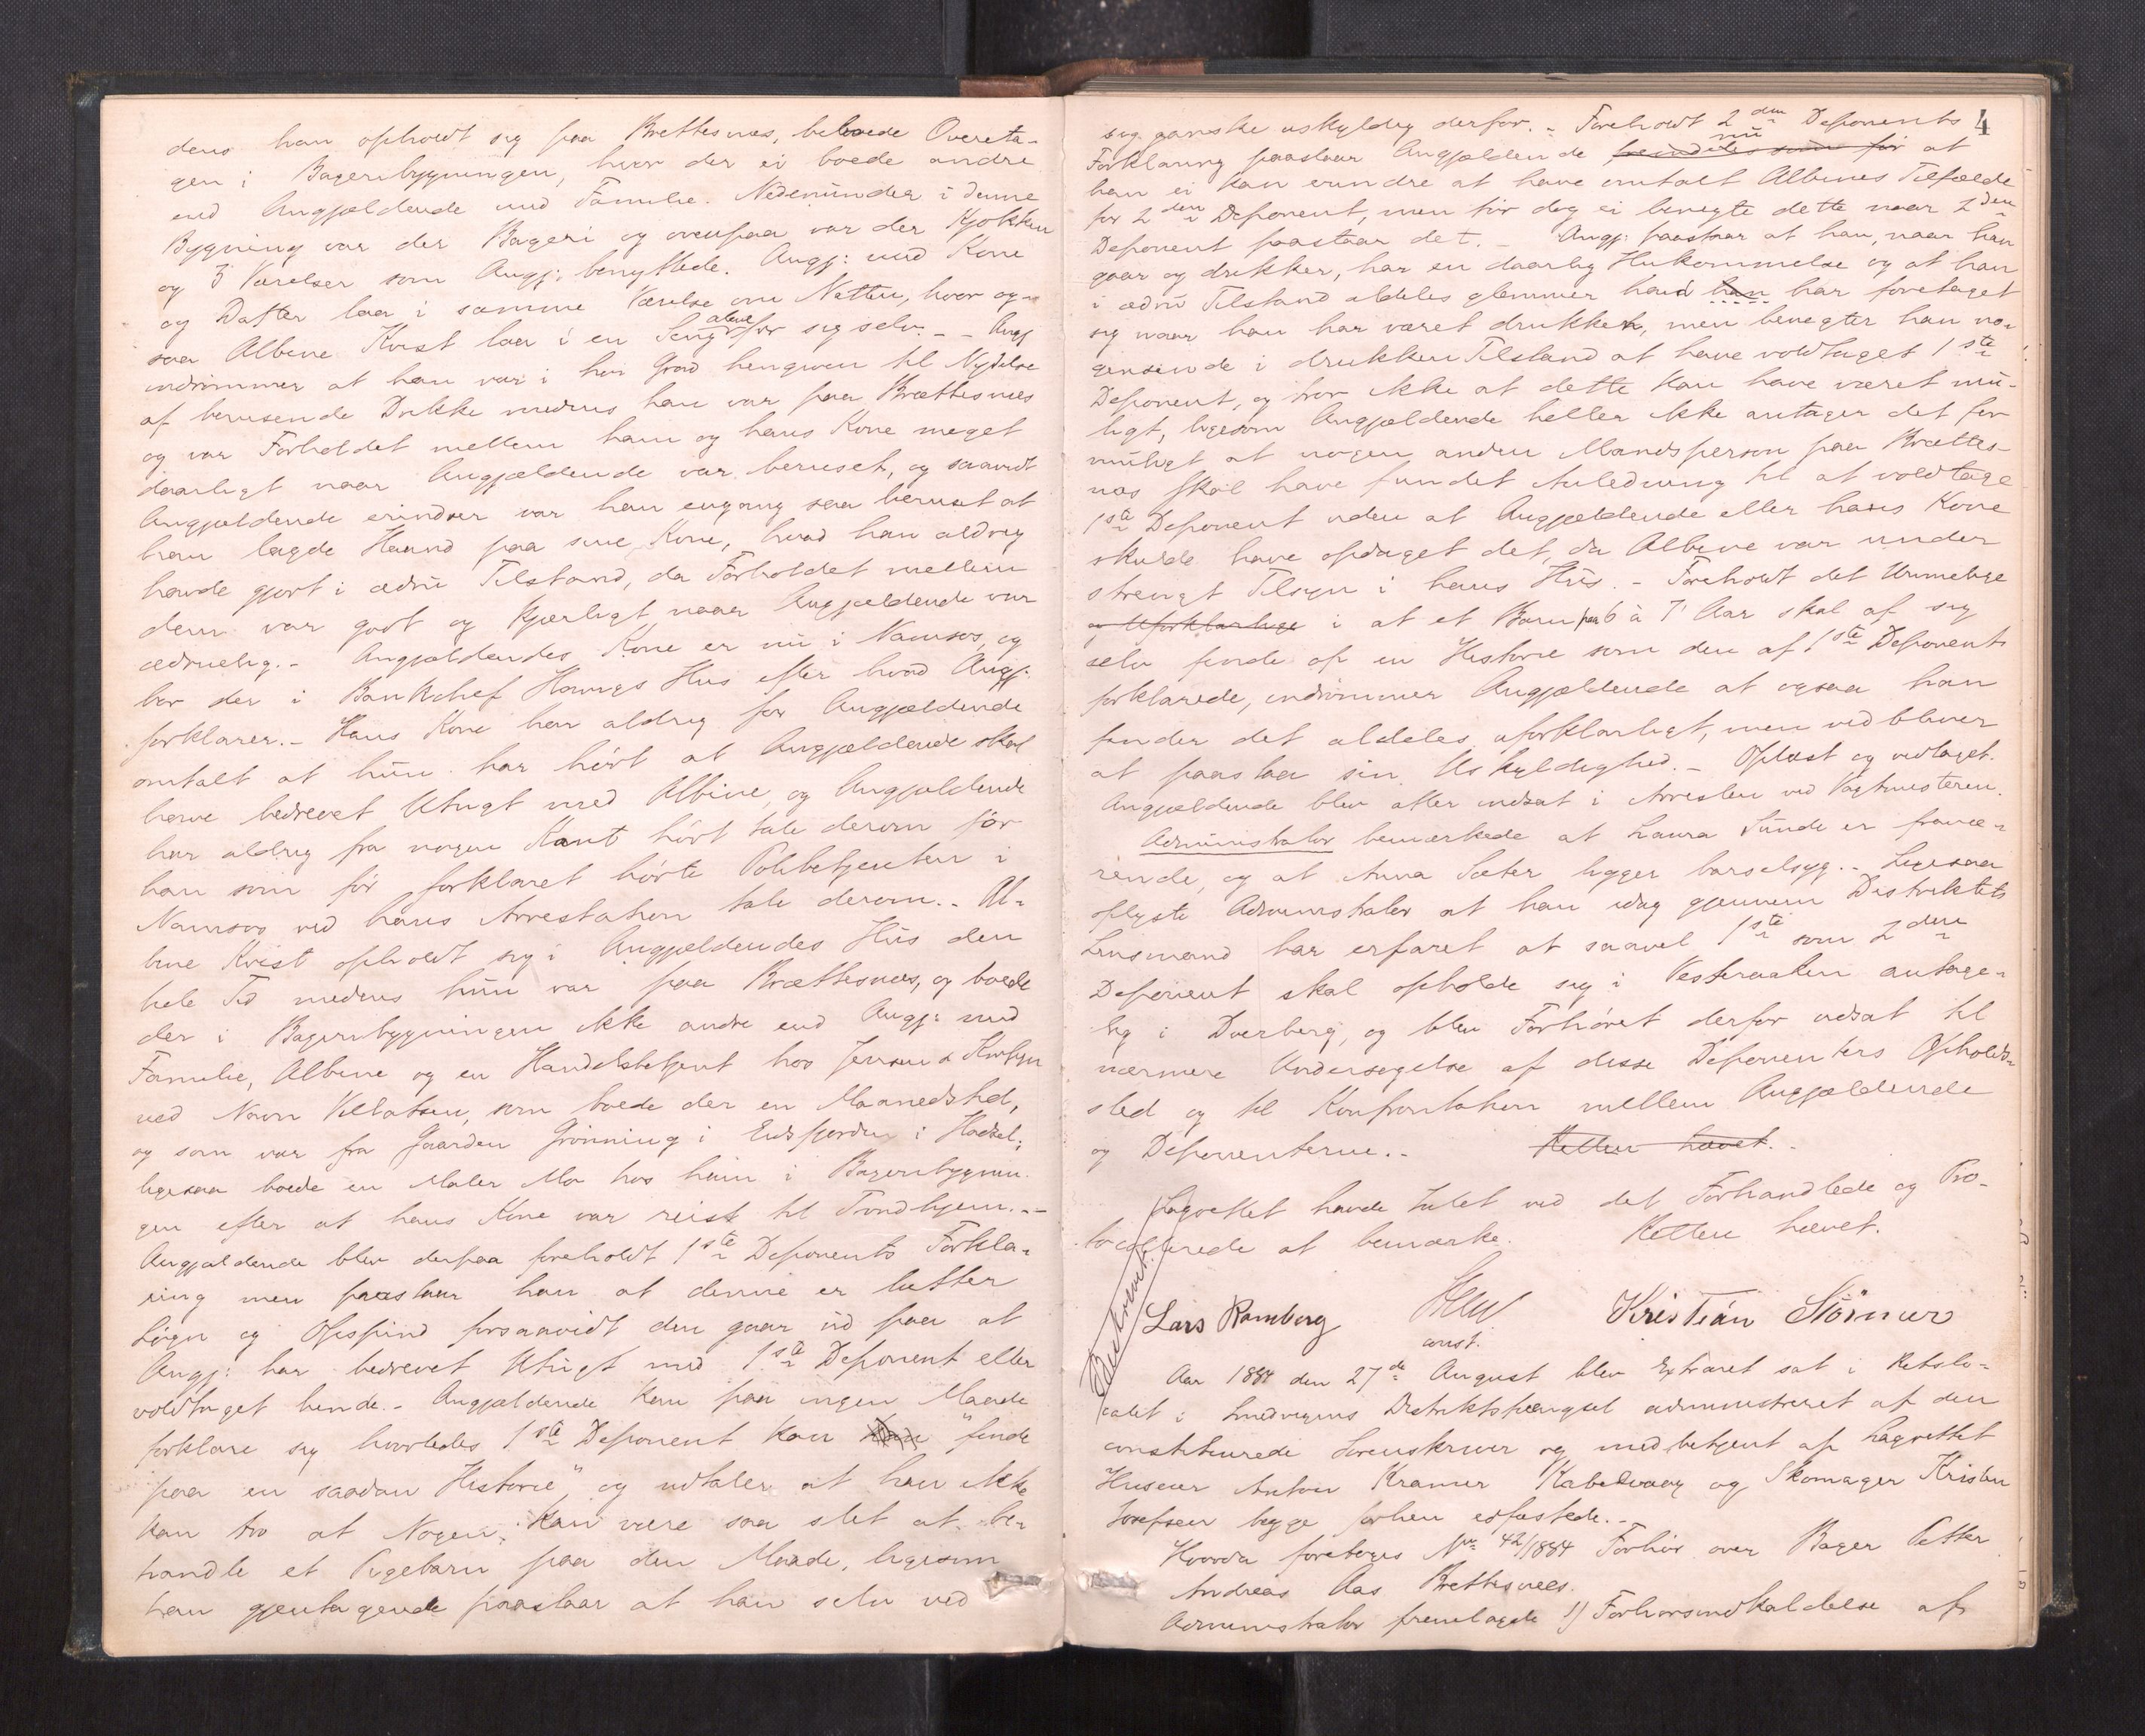 dens han opholdt sig paa Brettesnæs, beboede Overeta-
gen i Bageribygningen, hvor der ei boede andre
end Angjældende med Familie. Nedenunder i denne
Bygning var der Bageri og ovenpaa var der Kjøkken
og 3 Værelser som Angj: benyttede. Angj: med Kone
og Datter laa i samme Værelse om Natten, hvor og-
saa Albine Kvist laa i en Seng alene for sig selv. - Angj
indrømmer at han var i høi Grad hengiven til Nydelse
af berusende Drikke medens han var paa Brættesnæs
og var Forholdet mellem ham og hans Kone meget
daarligt naar Angjældende var beruset, og saavidt
Angjældende erindrer var han engang saa beruset at
han lagde Haand paa sine Kone, hvad han aldrig
havde gjort i ædru Tilstand, da Forholdet mellem
dem var godt og kjærligt naar Angjældende var
ædruelig. - Angjældendes Kone er nu i Namsos, og
bor der i Bankchef Havigs Hus efter hvad Angj:
forklarer. - Hans Kone har aldrig for Angjældende
omtalt at hun har hørt at Angjældende skal
have bedrevet Utugt med Albine, og Angjældende
har aldrig fra nogen Kant hørt tale derom før
han som før forklaret hørte Politibetjenten i
Namsos ved hans Arrestation tale derom. - Al-
bine Kvist opholdt sig i Angjældendes Hus den
hele Tid medens hun var paa Brættesnæs, og boede
der i Bageribygningen ikke andre end Angj: med
Familie, Albine og en Handelsbetjent hos Jensen &
ved Navn Villatsen, som boede der en Maanedstid,
og som var fra Gaarden Grønning i Eidsfjorden i Hadsel;
ligesaa boede en Maler Mo hos ham i Bageribygnin-
gen efter at hans Kone var reist til Trondhjem. -
Angjældende blev derpaa foreholdt 1ste Deponents Forkla-
ring men paastaar han at denne er lutter
Løgn og Opspind forsaavidt den gaar ud paa at
Angj: har bedrevet Utugt med 1ste Deponent eller
voldtaget hende. - Angjældende kan paa ingen Maade
forklare sig hvorledes 1ste Deponent kan "finde
paa en saadan Historie" og udtaler at han ikke
kan tro at Nogen kan være saa slet at be-
handle et Pigebarn paa den Maade, ligesom
han gjentagende paastaar at han selv ved
4
sig ganske uskyldig derfor. - Foreholdt 2den Deponents
Forklaring paastaar Angjældende nu fremdeles som før at
han ei kan erindre at have omtalt Albines Tilfælde
for 2den Deponent, men tør dog ei benegte dette naar 2den
Deponent paastaar det. - Angj: paastaar at han, naar han
gaar og drikker, har en daarlig Hukommelse og at han
i ædru Tilstand aldeles glemmer hvad han har foretaget
sig naar han har været drukken, men benegter han no-
gensinde i drukken Tilstand at have voldtaget 1ste
Deponent, og tror ikke at dette kan have været mu-
ligt, ligesom Angjældende heller ikke antager det for
muligt at nogen anden Mandsperson paa Brættes-
næs skal have fundet Anledning til at voldtage
1ste Deponent uden at Angjældende eller hans Kone
skulde have opdaget det, da Albine var under
strengt Tilsyn i hans Hus. - Foreholdt det Urimelige
og Uforklarlige i at et Barn paa 6 à 7 Aar skal af sig
selv finde op en Historie som den af 1ste Deponent
forklarede, indrømmer Angjældende at ogsaa han
finder det aldeles uforklarligt, men vedbliver
at paastaa sin Uskyldighed. - Oplæst og vedtaget.
Angjældende blev atter indsat i Arresten ved Vagtmesteren.
Administrator bemærkede at Laura Sunde er fravæ-
rende, og at Anna Sæter ligger barselsyg. - Ligesaa
oplyste Administrator at han idag gjennem Distriktets
Lensmand har erfaret at saavel 1ste som 2den
Deponent skal opholde sig i Vesteraalen antage-
lig i Dverberg, og blev Forhøret derfor udsat til
nærmere Undersøgelse af disse Deponenters Opholds-
sted og til Konfrontation mellem Angjældende
og Deponenterne. - Retten hævet. -
Lagrettet havde Intet ved det Forhandlede og Pro-
tocollerede at bemærke. Retten hævet.
Lars Ramberg
const.
Kristian Störmer
Aar 1884 den 27de August blev Extraret sat i Retslo-
calet i Svolværgens Distriktsfængsel administreret af den
constituerede Sorenskriver og med betjent af Lagrettet
Huseier Anton Kramer Kabelvaag og Skomager Kristen
Josefsen begge forhen edfæstede. -
Hvorda foretoges No 42/1884 Forhør over Bager Petter
Andreas Aas Brettesnæs.
Administrator fremlagde 1) Forhørsindkaldelse af